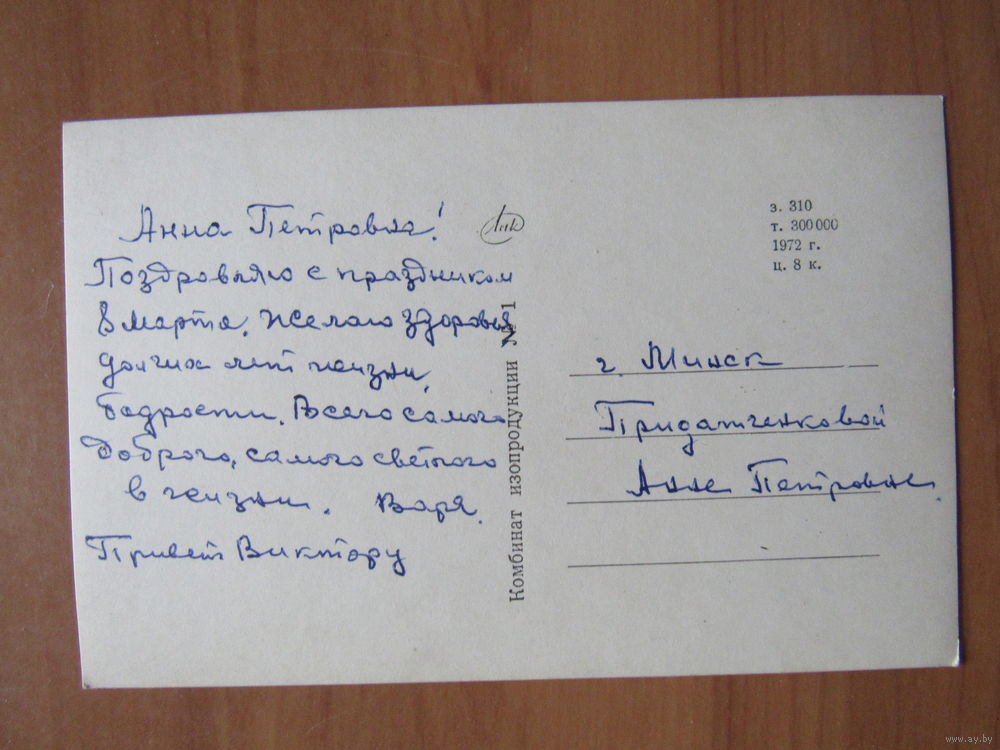 Анна Петровна!
Поздравляю с праздником
8 марта. Желаю здоровья
долгих лет жизни,
бодрости. Всего самого
доброго, самого светлого
в жизни. Варя.
Привет Виктору
Комбинат изопродукции № 1
з. 310
т. 300 000
1972 г.
ц. 8 к.
г. Минск
Придатченковой
Анне Петровне.
www.ay.by